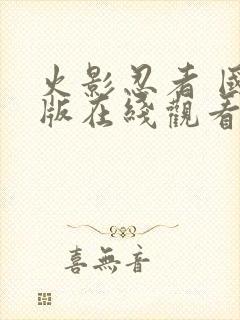 火影忍者 國
版在綫觀看
喜無音